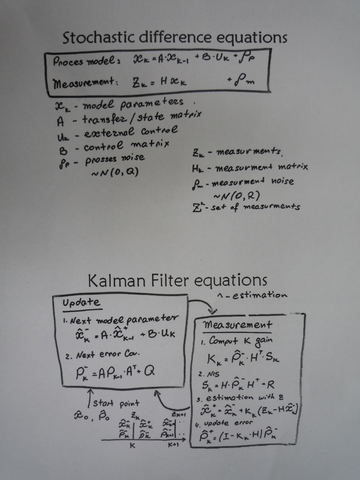 Stochastic difference equations
Proces model: x_k = A·x_k-1 + B·U_k + ρ_p
Measurement: Z_k = H x_k + ρ_m
x_k - model parameters.
A - transfer/state matrix
u_k - external control
B - control matrix
ρ_p - prosses noise
~N(0,Q)
Z_k - measurments.
H_k - measurment matrix
ρ_m - measurment noise
~N(0,R)
Z^k - set of measurments
Kalman Filter equations
^ - estimation
Update
1. Next model parameter
x̂_k^- = A·x̂_k-1^+ + B·U_k
2. Next error Cov.
P_k^- = A P_k-1·A^T + Q
Start point
x̂_0, P̂_0
Z_k Z_k+1
x̂_k^- x̂_k^+ x̂_k+1^-
P̂_k^- P̂_k^+ P̂_k+1^-
k k+1
Measurement
1. Comput K gain
K_k = P̂_k^-·H^T·S_k
2. NIS
S_k = H·P̂_k^- H^T + R
3. estimation with Z
x̂_k^+ = x̂_k^- + K_k(Z_k - H x̂_k^-)
4. update error
P̂_k^+ = (I - K_k·H) P̂_k^-